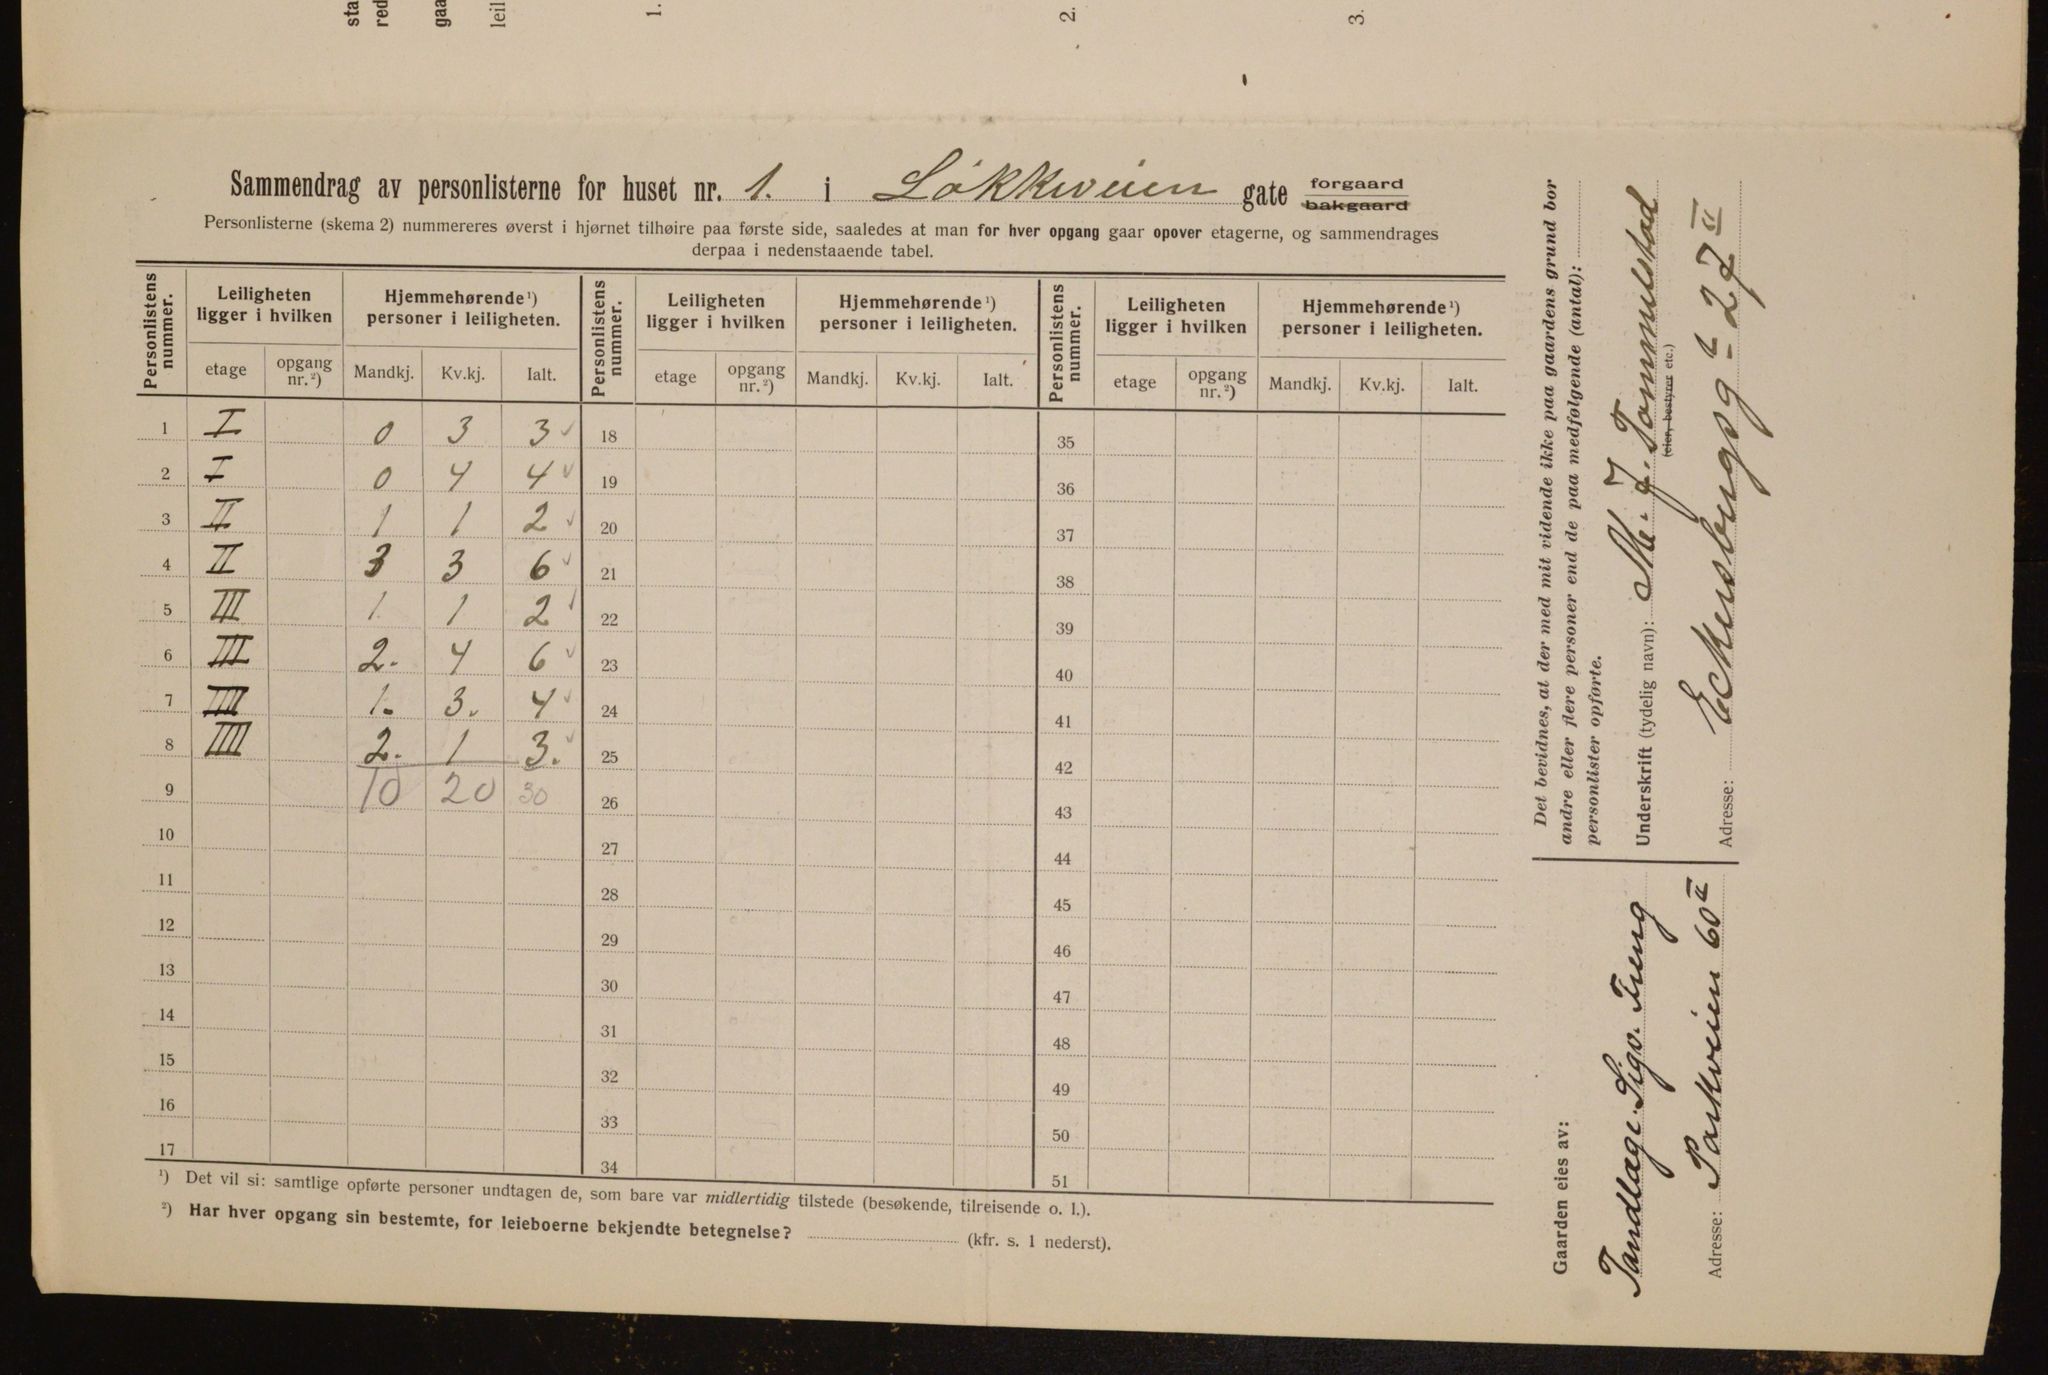 sta
red
gaa
leil
1.
2.
3.
Sammendrag av personlisterne for huset nr. 1. i Løkkeveien gate forgaard bakgaard
Personlisterne (skema 2) nummereres øverst i hjørnet tilhøire paa første side, saaledes at man for hver opgang gaar opover etagerne, og sammendrages
derpaa i nedenstaaende tabel.
Personlistens nummer. Leiligheten ligger i hvilken Hjemmehørende ¹) personer i leiligheten. Personlistens nummer. Leiligheten ligger i hvilken Hjemmehørende ¹) personer i leiligheten. Personlistens nummer. Leiligheten ligger i hvilken Hjemmehørende ¹) personer i leiligheten.
etage opgang nr. ²) Mandkj. Kv.kj. Ialt. etage opgang nr. ²) Mandkj. Kv.kj. Ialt. etage opgang nr. ²) Mandkj. Kv.kj. Ialt.
1 I 0 3 3 ✓ 18 35
2 I 0 4 4 ✓ 19 36
3 II 1 1 2 ✓ 20 37
4 II 3 3 6 ✓ 21 38
5 III 1. 1 2 ✓ 22 39
6 III 2. 4 6 ✓ 23 40
7 IIII 1. 3. 4 ✓ 24 41
8 IIII 2. 1 3. ✓ 25 42
9 10 20 30 26 43
10 27 44
11 28 45
12 29 46
13 30 47
14 31 48
15 32 49
16 33 50
17 34 51
¹) Det vil si: samtlige opførte personer undtagen de, som bare var midlertidig tilstede (besøkende, tilreisende o. l.).
²) Har hver opgang sin bestemte, for leieboerne bekjendte betegnelse? (kfr. s. 1 nederst).
Det bevidnes, at der med mit vidende ikke paa gaardens grund bor
andre eller flere personer end de paa medfølgende (antal):
personlister opførte.
Underskrift (tydelig navn): J. Tommelstad
(eier, bestyrer etc.)
Adresse: Eckersbergsg t 27 II
Gaarden eies av:
Tandlæge Sigv. Treng
Adresse: Parkveien 60 II